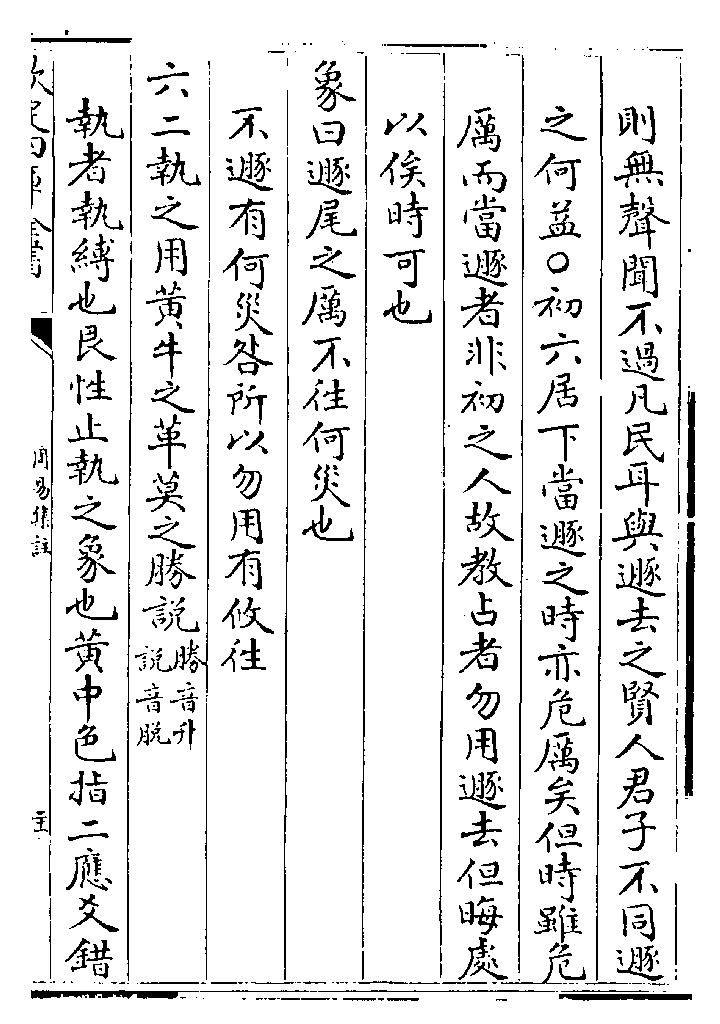 則無聲聞不過凡民耳與遯去之賢人君子不同遯
之何益○初六居下當遯之時亦危厲矣但時雖危
厲而當遯者非初之人故教占者勿用遯去但晦處
以俟時可也
象曰遯尾之厲不往何災也
不遯有何災咎所以勿用有攸往
六二執之用黃牛之革莫之勝說勝音升說音脫
執者執縛也艮性止執之象也黃中色指二應爻錯
欽定四庫全書
周易集註